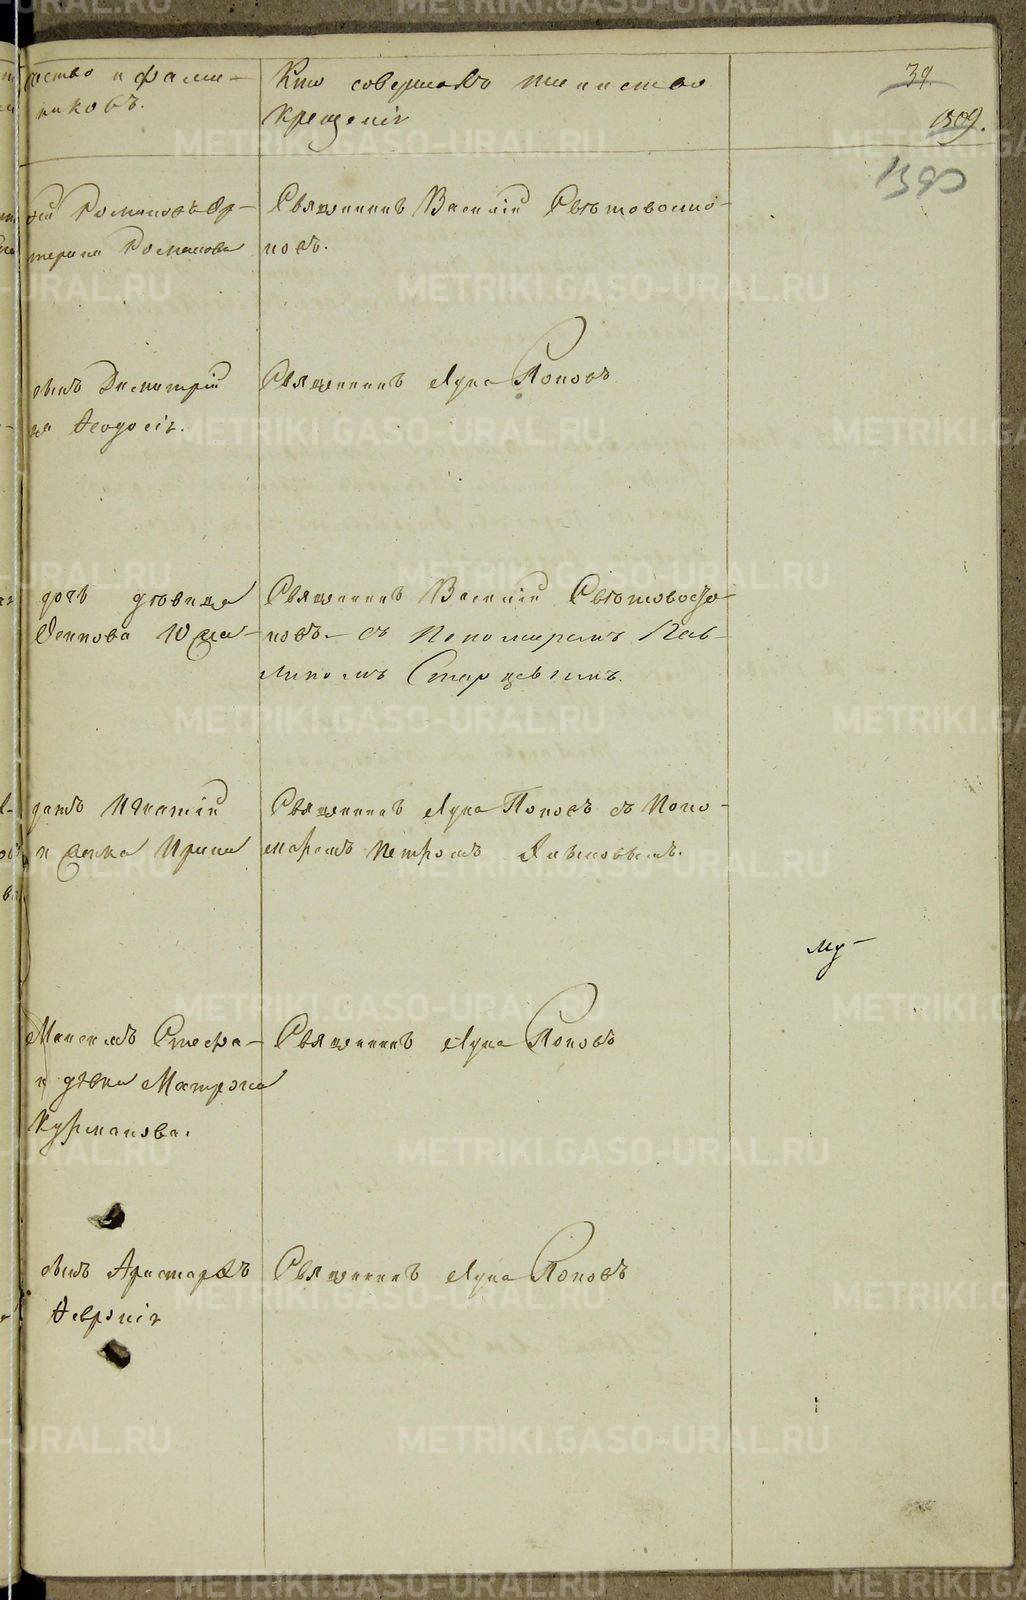 39.
1509.
1390
чество и фами-
никовъ.
Кто совершалъ таинство
крещенія
Романовъ Ор-
терина Романова
Священникъ Василій Свѣтовосто-
ковъ.
Димитрій
Ѳеодосія.
Священникъ Лука Поповъ
дочь дѣвица
Юлиа-
Священникъ Василій Свѣтовосто-
ковъ. съ Пономаремъ Пав-
линомъ Старцевымъ.
датъ Игнатій
и жена Ирина
Священникъ Лука Поповъ съ Поно-
маремъ Петромъ
Му-
Максимъ Стефа-
и дѣвка Матрона
Курманова.
Священникъ Лука Поповъ
Аристархъ
Ѳевронія
Священникъ Лука Поповъ
METRIKI.GASO-URAL.RU